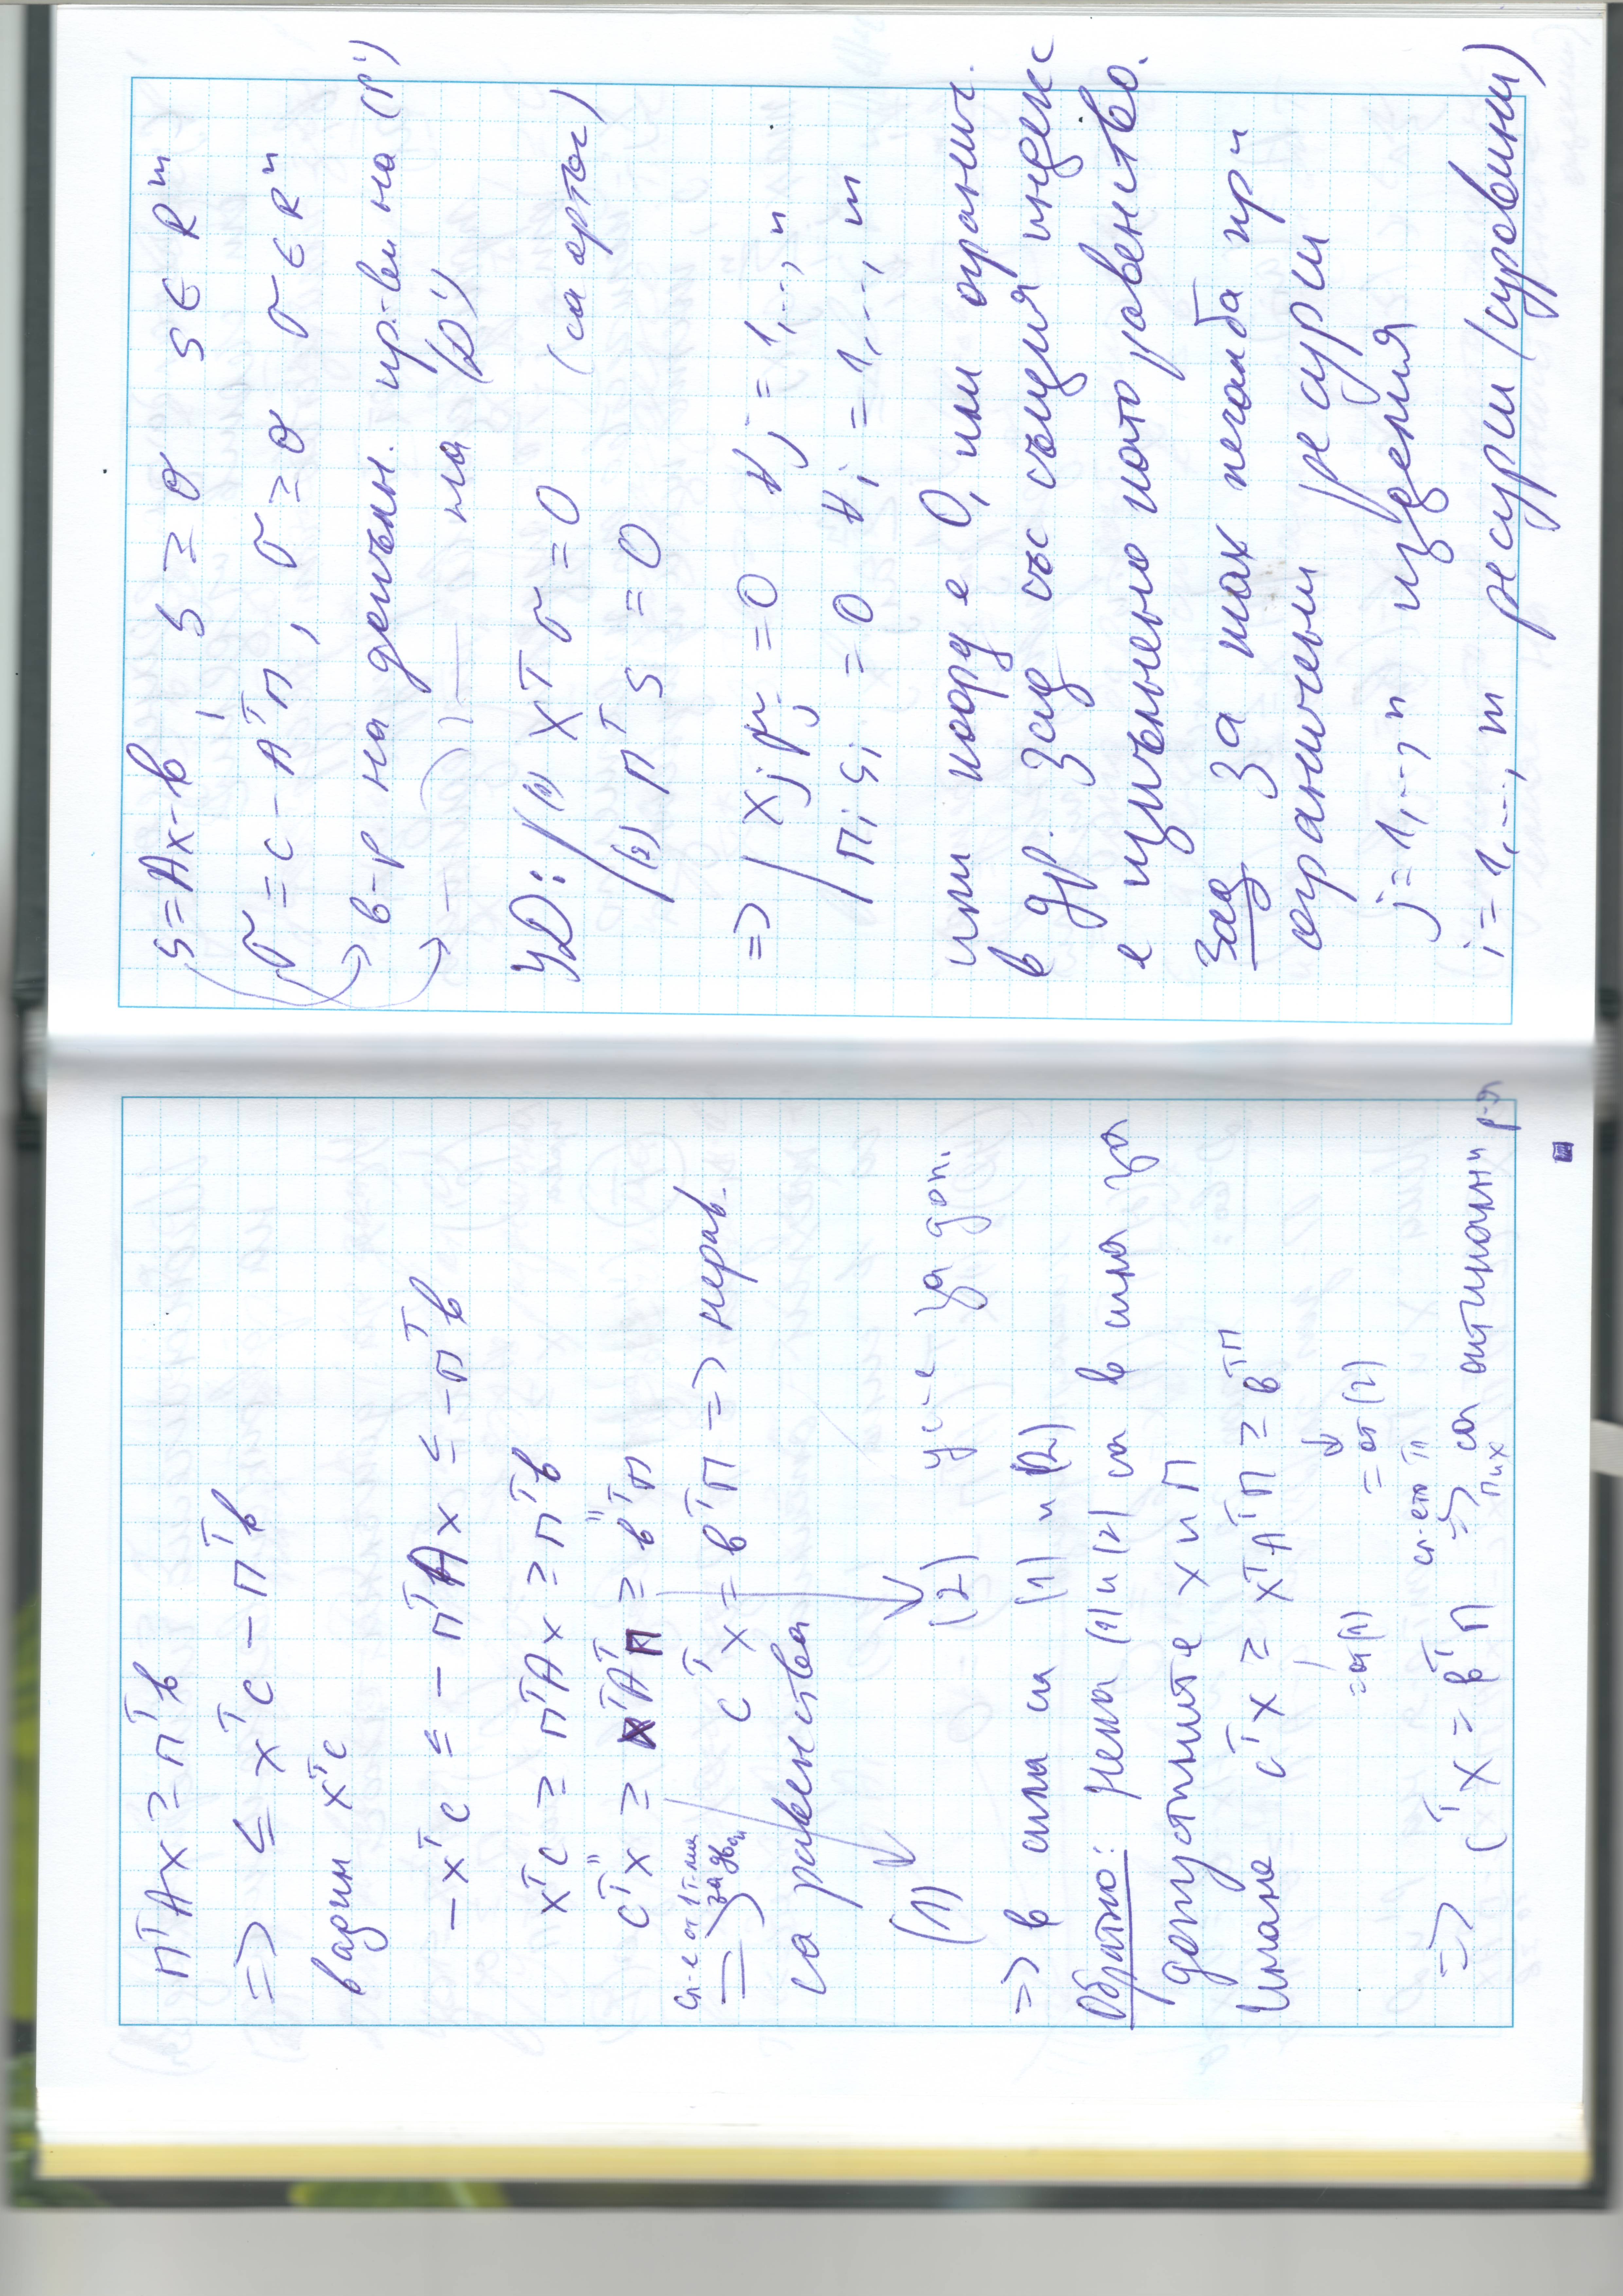 ΠᵀAx ≥ Πᵀb
=> ≤ xᵀc − Πᵀb
вадим xᵀc
−xᵀc ≤ −ΠᵀAx ≤ −Πᵀb
xᵀc ≥ ΠᵀAx ≥ Πᵀb
cᵀx ≥ xᵀAᵀΠ ≥ bᵀΠ
=> cᵀx = bᵀΠ => нерав.
са равенства
(1) (2) за доп.
=> в сила са (1) и (2)
Обратно: Нека (1) и (2) са в сила за
допустимите x и Π
Имаме cᵀx ≥ xᵀAᵀΠ ≥ bᵀΠ
= от(1) = от(2)
=> cᵀx = bᵀΠ => Π и x са оптимални р-я
s = Ax − b, s ≥ 0 s ∈ Rᵐ
σ = c − AᵀΠ, σ ≥ 0 σ ∈ Rⁿ
в-р на допълн. пр-ви на (P')
— на (D')
УД: (1) xᵀσ = 0 (са ортог)
(2) Πᵀs = 0
=> xⱼσⱼ = 0 ∀j = 1,..., n
Πᵢsᵢ = 0 ∀i = 1,..., m
или коорд е 0, или огранич.
в др. зад със същия индекс
е изпълнено като равенство.
Зад За мах печалба при
ограничени ресурси
j = 1,..., n изделия
i = 1,..., m ресурси (суровини)